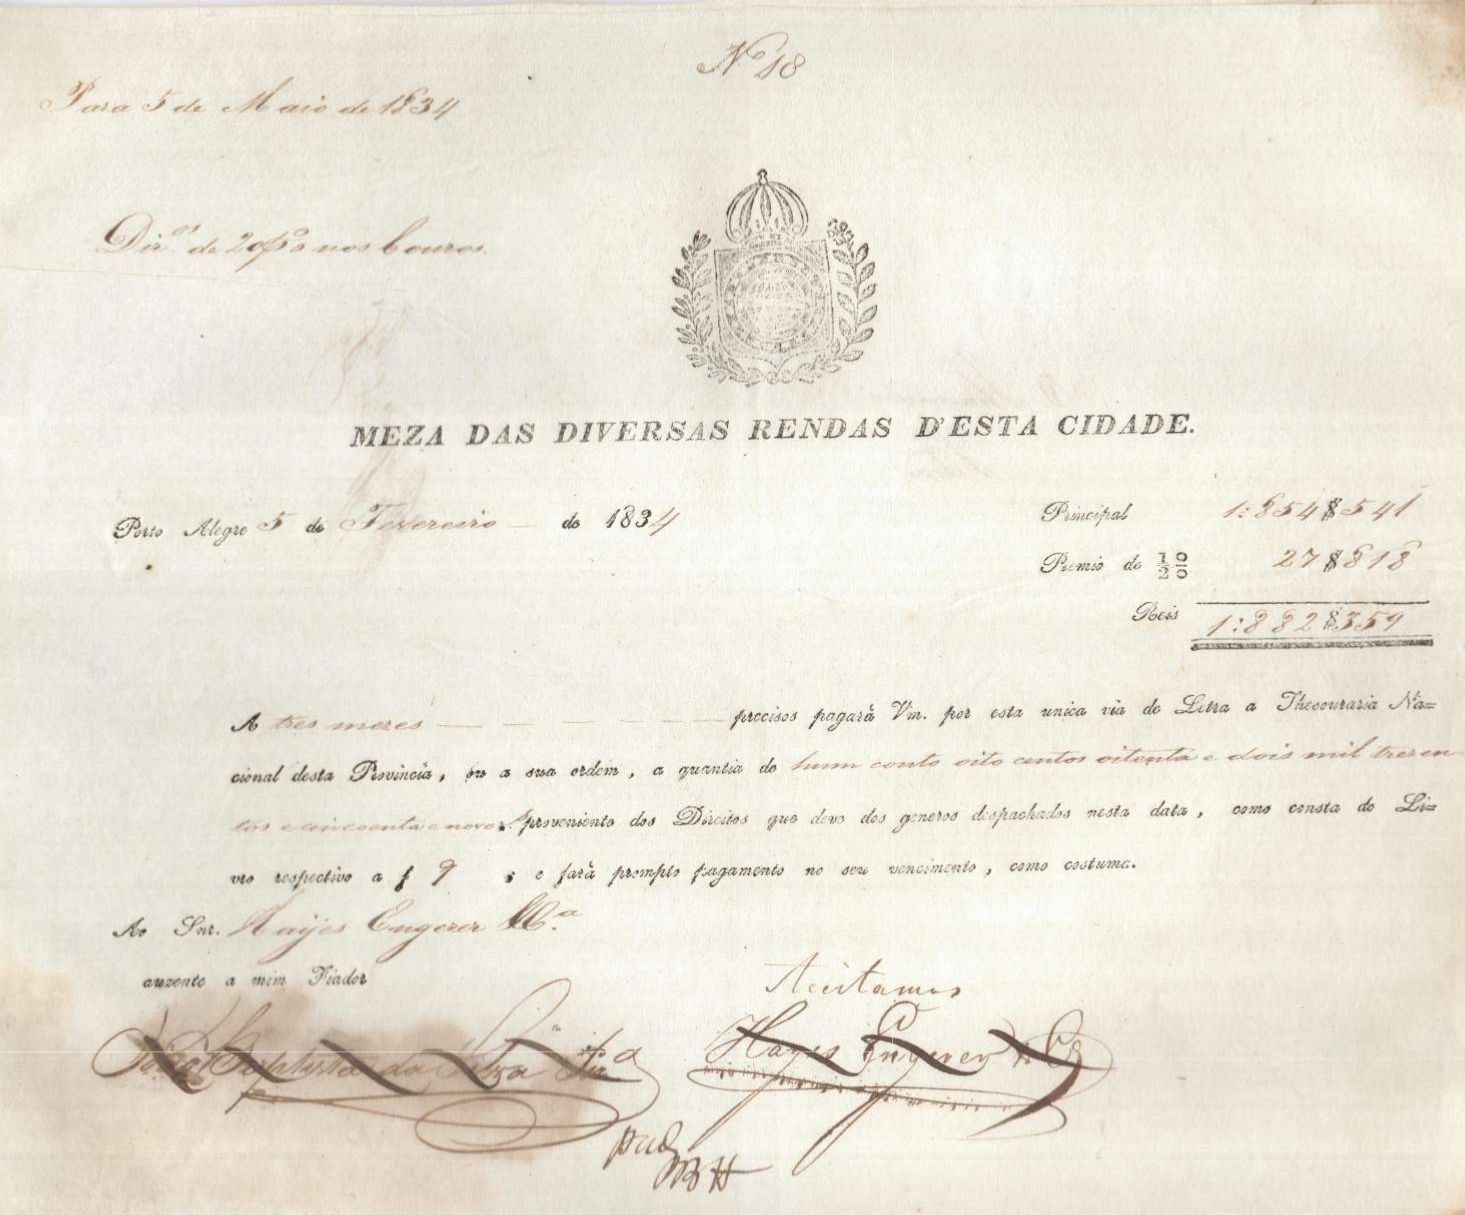 Nº 18
Para 5 de Maio de 1834
Dir.os de 20 p% nos Couros.
MEZA DAS DIVERSAS RENDAS D'ESTA CIDADE.
Porto Alegre 5 de Fevereiro de 1834
Principal 1:854$541
Premio de ½ % 27$818
Reis 1:882$359
A tres mezes precisos pagará Vm. por esta unica via de Letra a Thesouraria Na=
cional desta Provincia, ou a sua ordem, a quantia de hum conto oito centos oitenta e dois mil trezen-
tos e cincoenta e nove r.s proveniente dos Direitos que deve dos generos despachados nesta data, como consta do Li=
vro respectivo a f 9 , e fará prompto pagamento no seu vencimento, como costuma.
Ao Snr. Hayes Engerer & C.a
auzente a mim Fiador
Aceitamos
João Baptista da Silva Per.a
Hayes Engerer & Cª